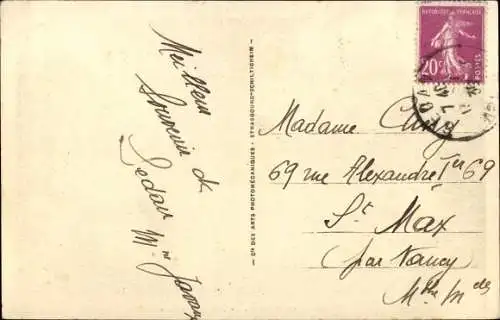 Meilleur
Souvenir de
Sedan
Mme
— Cie DES ARTS PHOTOMÉCANIQUES - STRASBOURG-SCHILTIGHEIM —
REPUBLIQUE FRANÇAISE
20c
POSTES
SEDAN
Madame
69 rue Alexandre 1er 69
St Max
par Nancy
Mthe Mlle